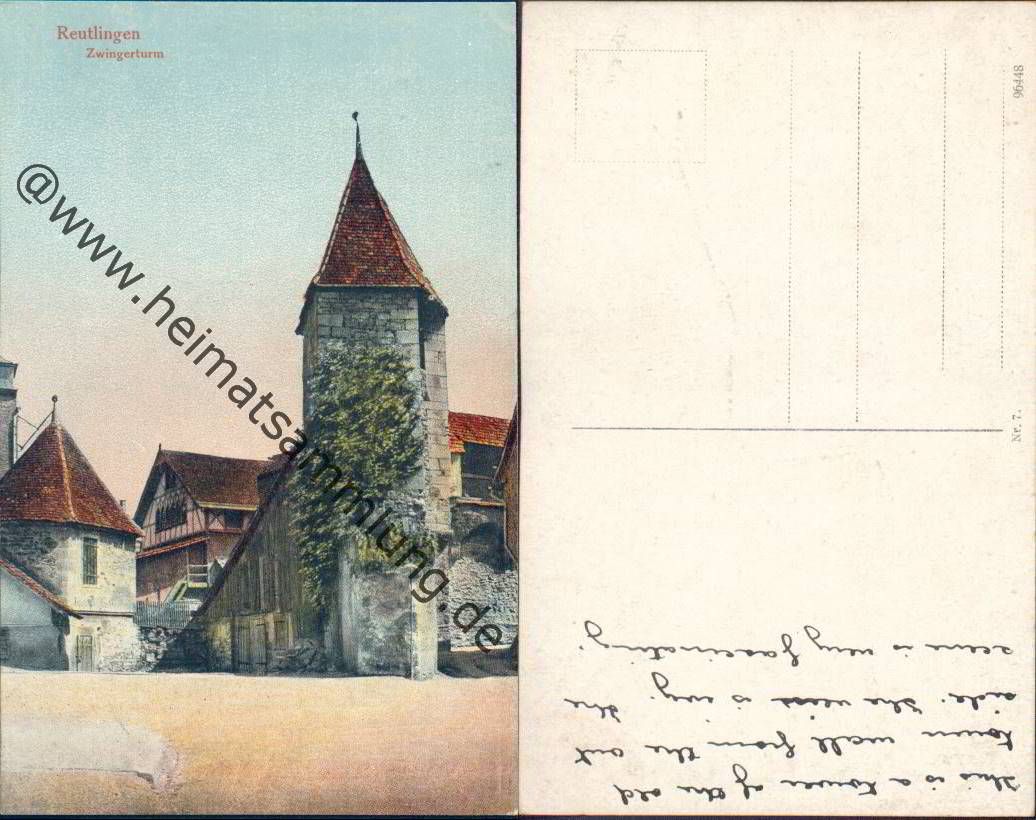 Reutlingen
Zwingerturm
@www.heimatsammlung.de
96448
Nr. 7.
This is a tower of the old
town wall from the out
side. The vine is ivy. the
scene is very fascinating.